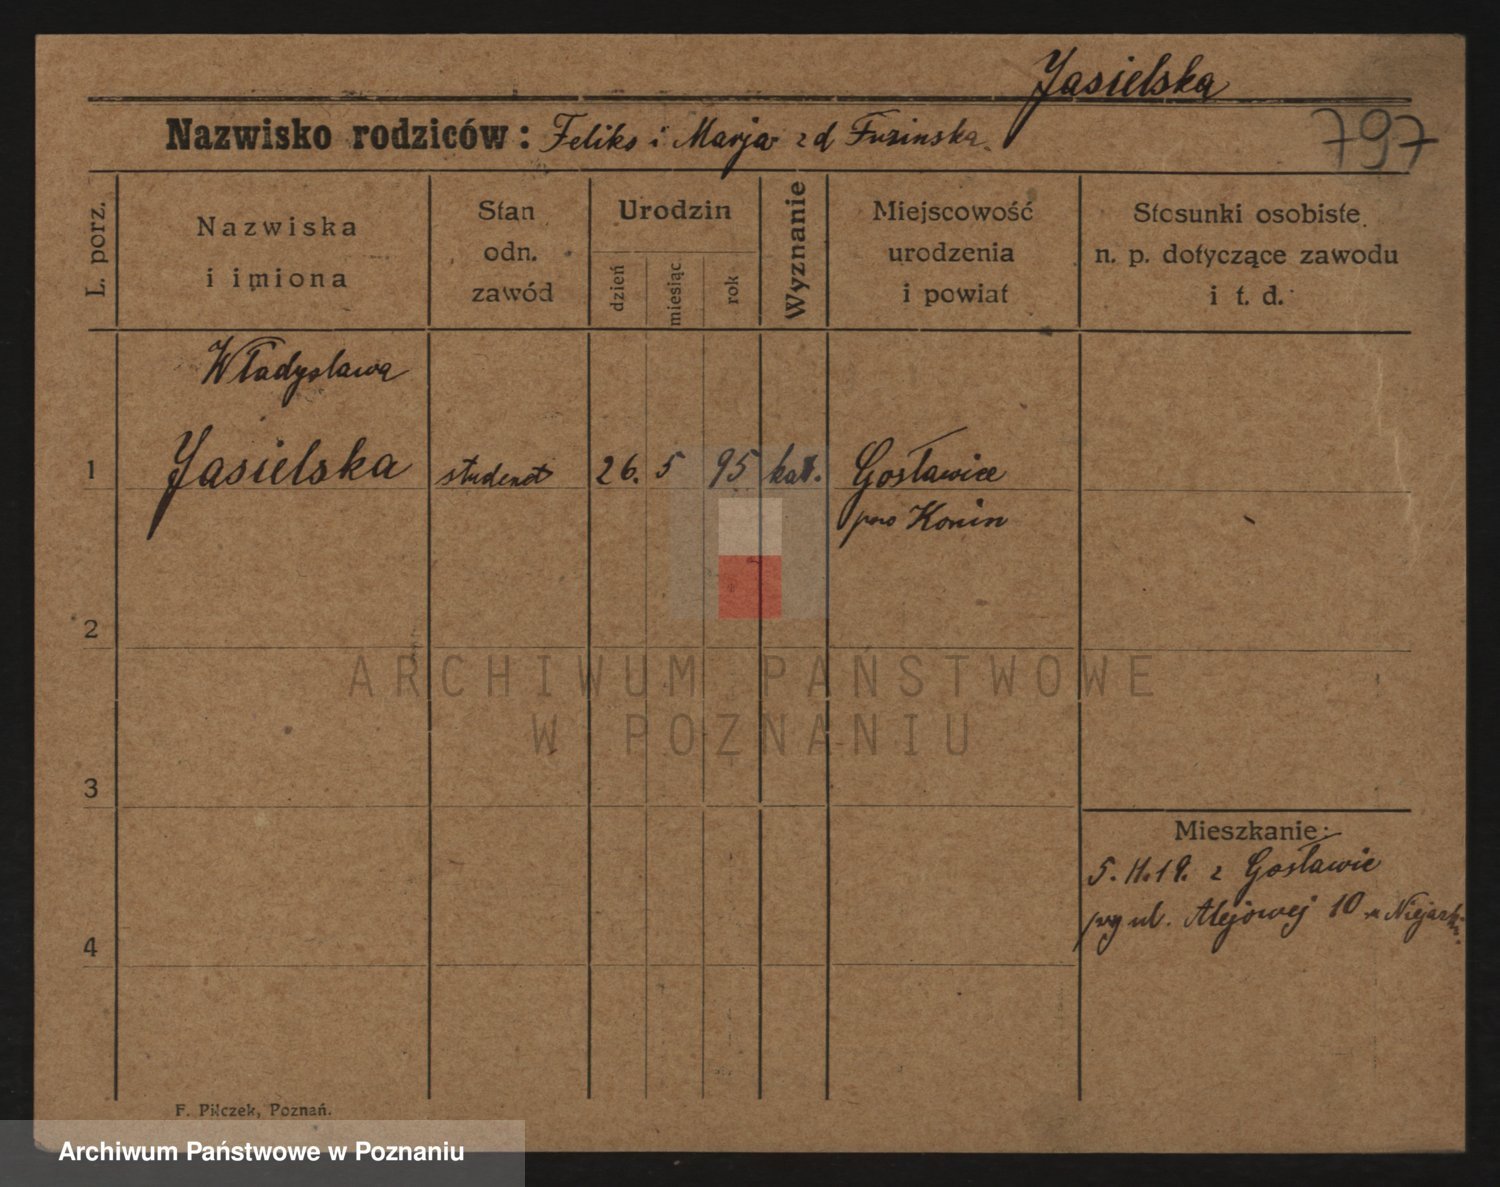 Jasielska
797
Nazwisko rodziców: Feliks i Marja zd Fuzinska
L. porz.
Nazwiska
i imiona
Stan
odn.
zawód
Urodzin
dzień
miesiąc
rok
Wyznanie
Miejscowość
urodzenia
i powiat
Stosunki osobiste
n. p. dotyczące zawodu
i t. d.
Władysława
1 Jasielska student 26. 5 95 kat. Gosławice
pow Konin
2
ARCHIWUM PAŃSTWOWE
W POZNANIU
3
Mieszkanie:
5. 11. 19. z Gosławic
4 przy ul. Alejowej 10
F. Pilczek, Poznań.
Archiwum Państwowe w Poznaniu